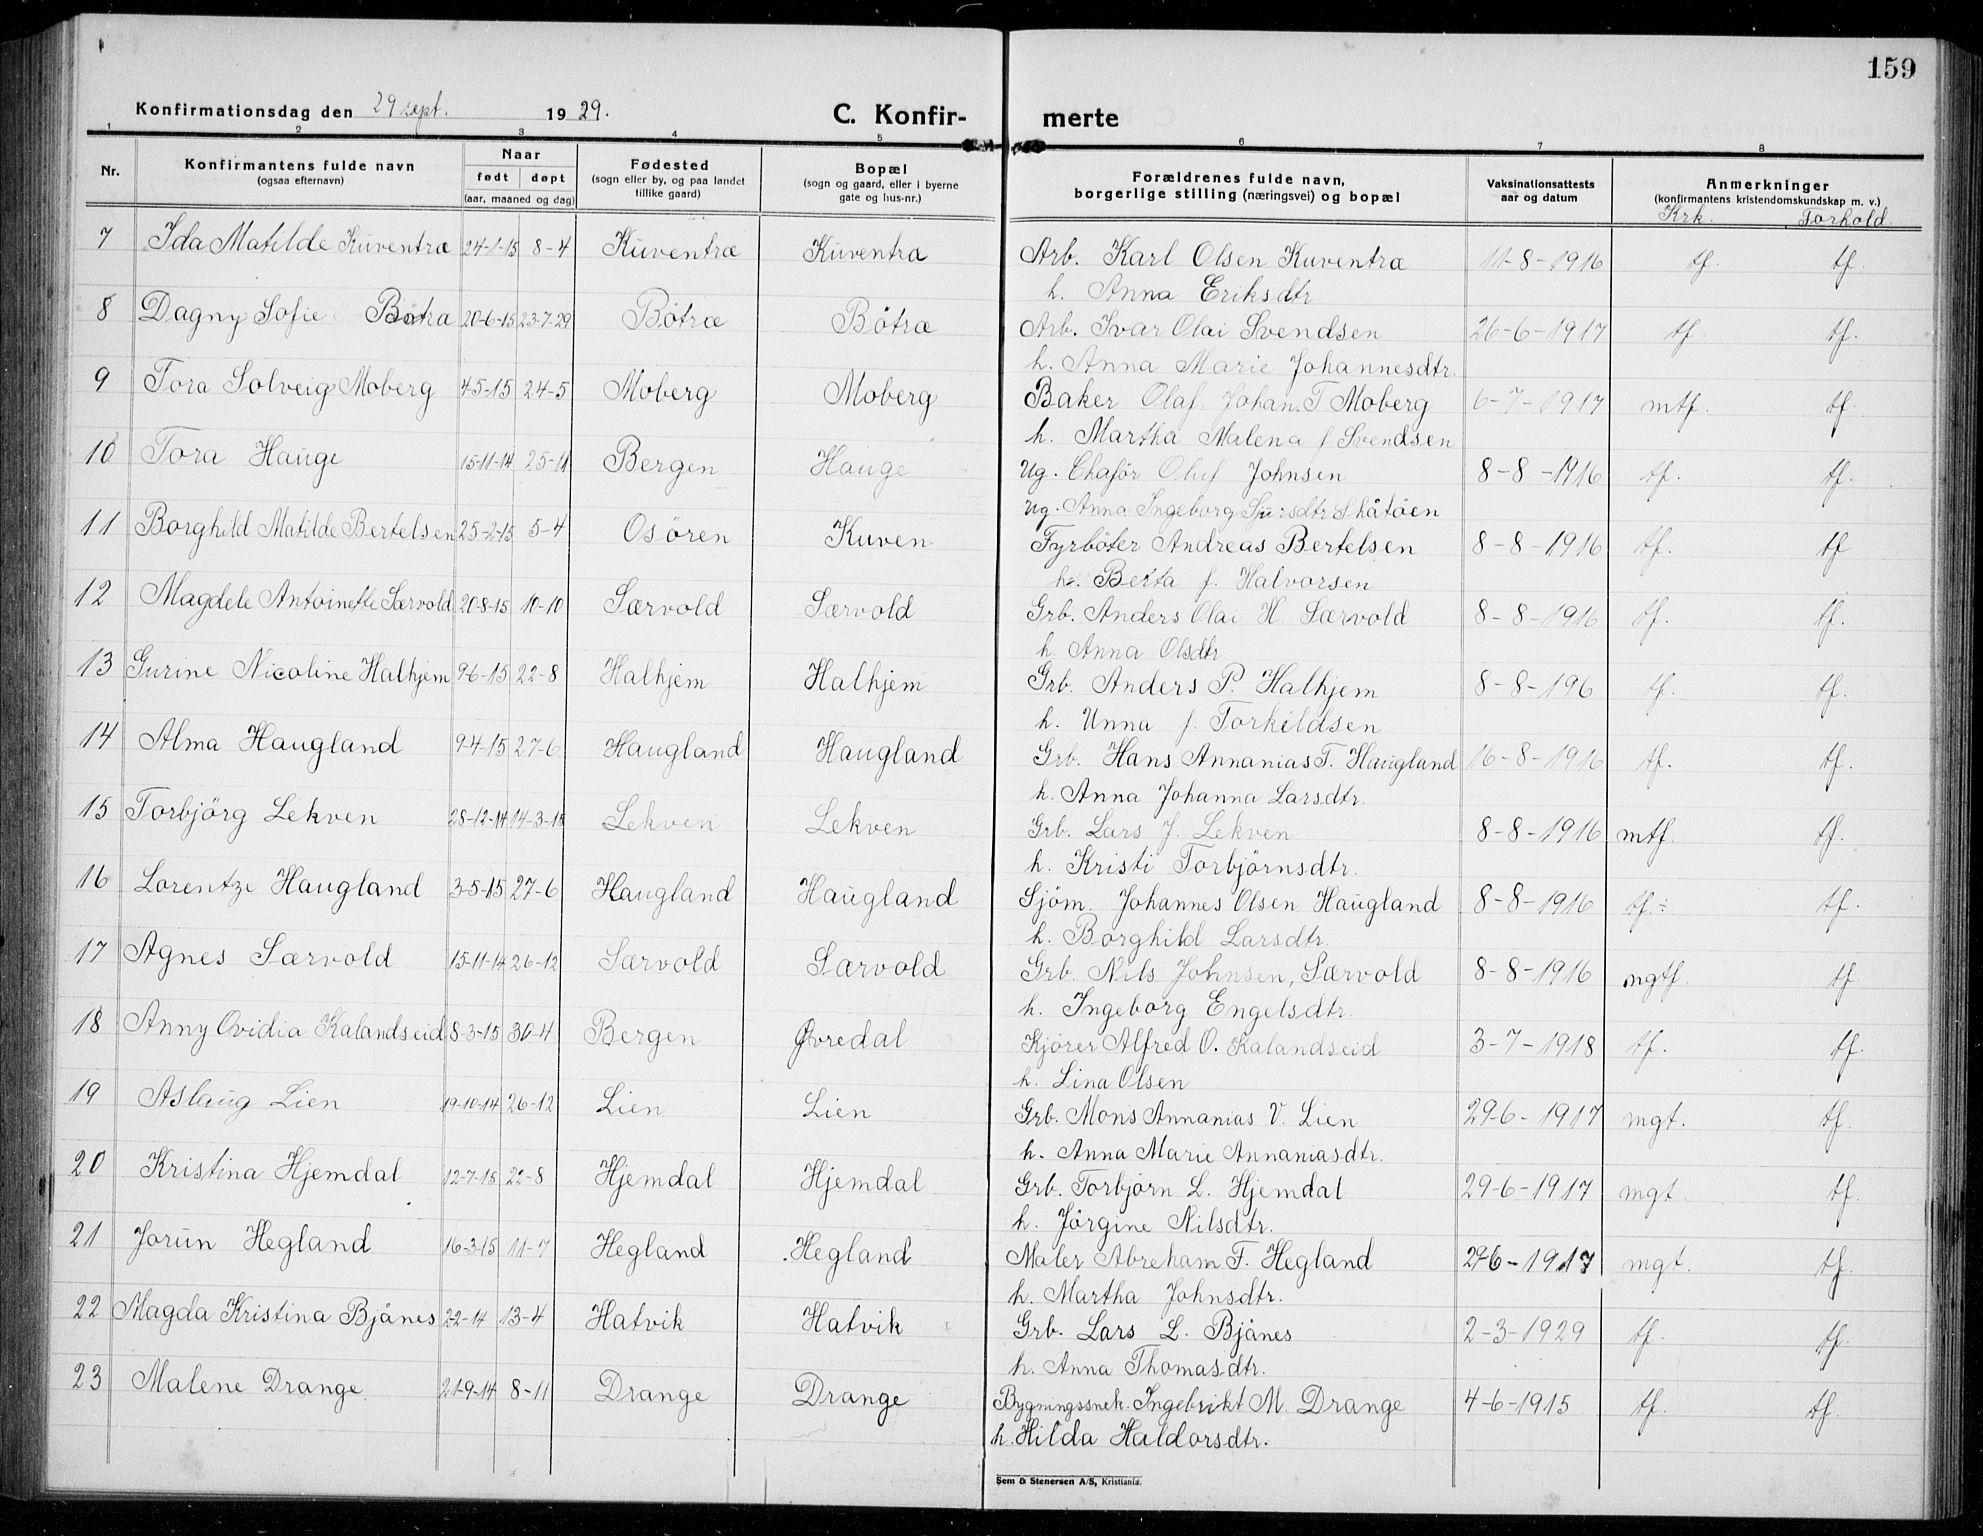 159
Konfirmationsdag den 29 sept. 1929. C. Konfirmerte
1 2 3 4 5 6 7 8
Nr. Konfirmantens fulde navn (ogsaa efternavn) Naar født døpt (aar, maaned og dag) Fødested (sogn eller by, og paa landet tillike gaard) Bopæl (sogn og gaard, eller i byerne gate og hus-nr.) Forældrenes fulde navn, borgerlige stilling (næringsvei) og bopæl Vaksinationsattests aar og datum Anmerkninger (konfirmantens kristendomskundskap m. v.)
Krk. Forhold.
7 Ida Matilde Kuventræ 24-1-15 8-4 Kuventræ Kuventræ Arb. Karl Olsen Kuventræ 11-8-1916 tf. tf.
h. Anna Eriksdtr
8 Dagny Sofie Bøtra 20-6-15 23-7-29 Bötræ Bötræ Arb. Ivar Olai Svendsen 26-6-1917 tf. tf.
h. Anna Marie Johannesdtr.
9 Tora Solveig Moberg 4-5-15 24-5 Moberg Moberg Baker Olaf Johan T Moberg 6-7-1917 mtf. tf.
h. Martha Malena f Svendsen
10 Tora Hauge 15-11-14 25-11 Bergen Hauge Ug. Chafør Oluf Johnsen 8-8-1916 tf. tf.
Ug. Anna Ingeborg Sjursdtr Skåtöen
11 Borghild Matilde Bertelsen 25-2-15 5-4 Osören Kuven Fyrböter Andreas Bertelsen 8-8-1916 tf. tf
h. Berta f. Halvorsen
12 Magdele Antoinette Særvold 20-8-15 10-10 Særvold Særvold Grb. Anders Olai H. Særvold 8-8-1916 tf. tf.
h. Anna Olsdtr
13 Gurine Nicoline Halhjem 9-6-15 22-8 Halhjem Halhjem Grb. Anders P. Halhjem 8-8-196 tf. tf.
h. Unna f. Torkildsen
14 Alma Haugland 9-4-15 27-6 Haugland Haugland Grb. Hans Annanias T. Haugland 16-8-1916 tf. tf.
h. Anna Johanna Larsdtr.
15 Torbjörg Lekven 28-12-14 14-3-15 Lekven Lekven Grb. Lars J. Lekven 8-8-1916 mtf. tf.
h. Kristi Torbjörnsdtr.
16 Lorentze Haugland 3-5-15 27-6 Haugland Haugland Sjöm. Johannes Olsen Haugland 8-8-1916 tf. tf.
h. Borghild Larsdtr.
17 Agnes Særvold 15-11-14 26-12 Særvold Særvold Grb. Nils Johnsen, Særvold 8-8-1916 mgtf. tf
h. Ingeborg Engelsdtr.
18 Anny Ovidia Kalandseid 8-3-15 30-4 Bergen Øvredal Kjörer Alfred O. Kalandseid 3-7-1918 tf. tf.
h. Lina Olsen
19 Aslaug Lien 19-10-14 26-12 Lien Lien Grb. Mons Annanias V. Lien 29-6-1917 mgt. tf.
h. Anna Marie Annaniasdtr.
20 Kristina Hjemdal 12-7-15 22-8 Hjemdal Hjemdal Grb. Torbjörn L. Hjemdal 29-6-1917 mgt. tf.
h. Jörgine Nilsdtr.
21 Jorun Hegland 16-3-15 11-7 Hegland Hegland Maler Abreham T. Hegland 29-6-1917 mgt. tf.
h. Martha Johnsdtr.
22 Magda Kristina Bjånes 2-2-14 13-4 Hatvik Hatvik Grb. Lars L. Bjånes 2-3-1929 tf. tf.
h. Anna Thomasdtr.
23 Malene Drange 21-9-14 8-11 Drange Drange Bygningssnek. Ingebrikt M. Drange 4-6-1915 tf. tf.
h. Hilda Haldorsdtr.
Sem & Stenersen A/S, Kristiania.